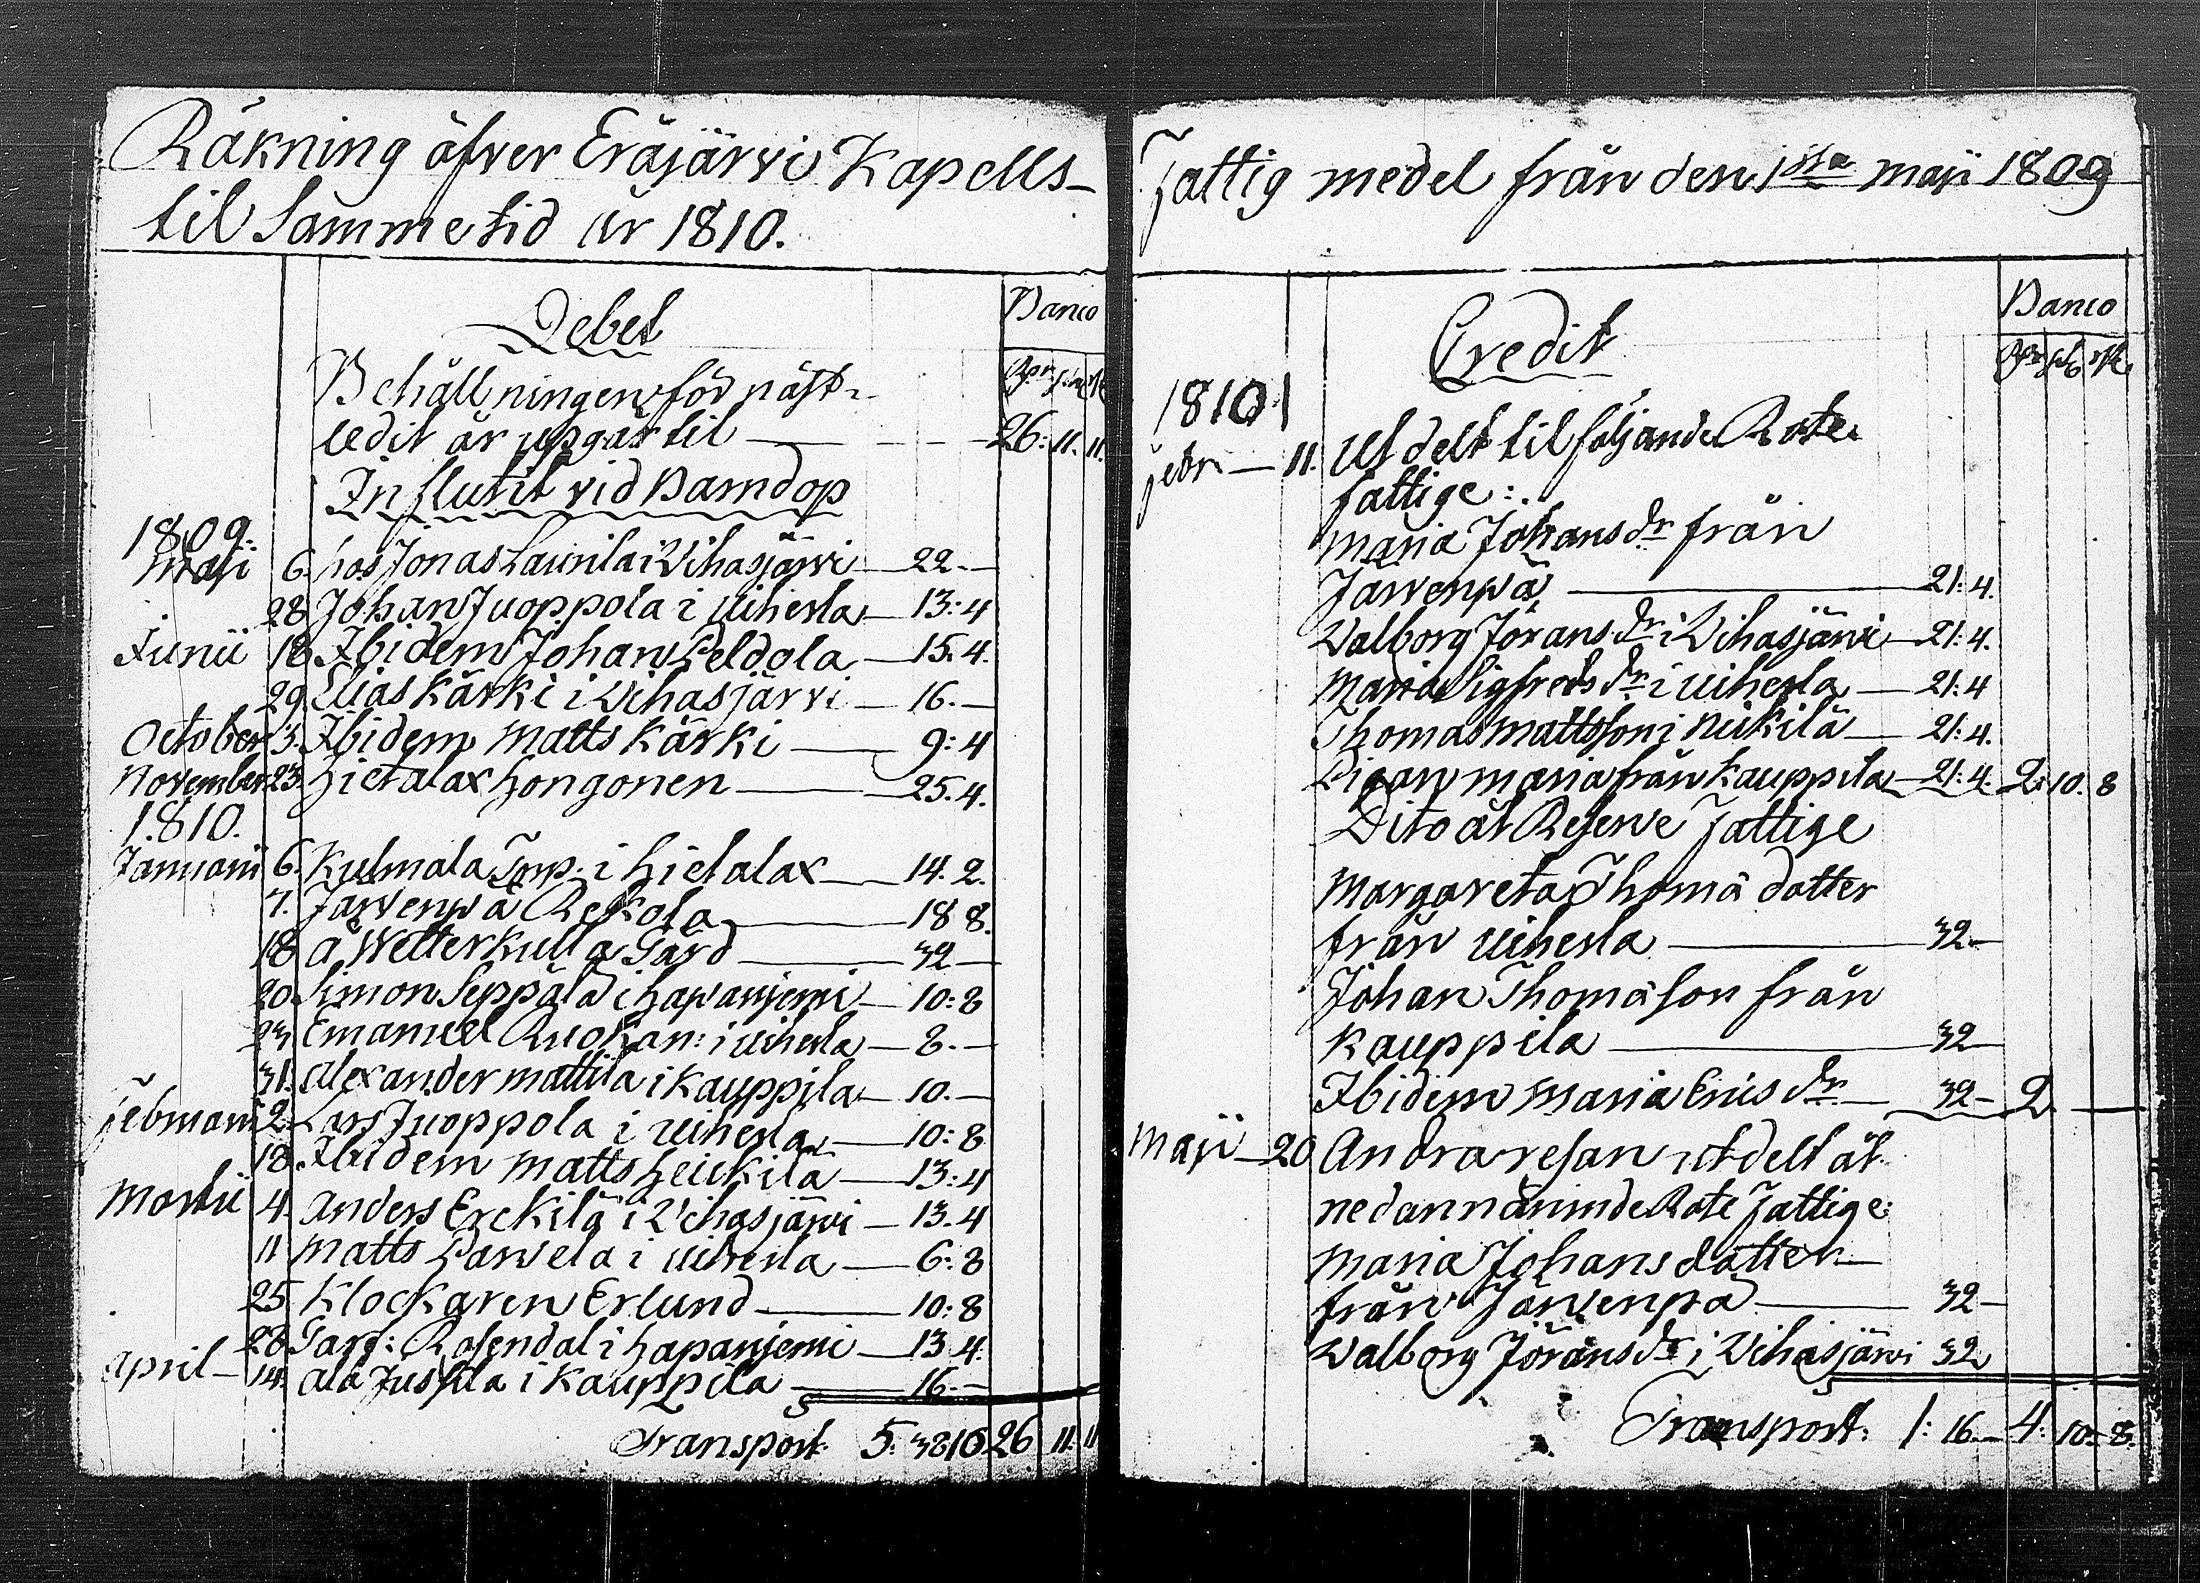 Räkning öfver Eräjärvi Kapells-
til samme tid år 1810.
Debet
Banco
Behållningen för näst-
ledit år upgår til — 26: 11. 11.
Influtit vid Barndop
1809.
Maji 6. hos Jonas Laurila i Vihasjärvi — 22. —
28 Johan Juoppola i Uiherla — 13: 4
Junii 18 Ibidem Johan Peldola — 15. 4.
29 Elias Kärki i Vihasjärvi — 16. —
October 3. Ibidem Matts Kärki — 9: 4
November 23. Hietalax Hongonen — 25. 4.
1810.
Januarii 6. Kulmala Torp. i Hietalax — 14. 2.
7. Jarvenpä Rekola — 18 8.
18 a Wetterkulla Gård — 32 —
20. Simon Seppälä i Hapanjemi — 10: 8
23 Emanuel Ruokan: i Uiherla — 8. —
31. Alexander Mattila i Kauppila — 10. —
Februarii 2. Lars Juoppola i Uiherla — 10: 8
18. Ibidem Matts Heickilä — 13: 4
Martii 4. Anders Erckilä i Vihasjärvi — 13. 4
11 Matts Parvela i Uiherla — 6: 8
25 Klockaren Erlund — 10: 8
28 Rosendal i Hapanjemi — 13. 4.
April — 14. Ala Jussila i Kauppila — 16. —
Transport 5: 38 10 26 11. 11
Fattig medel från den 1sta Maji 1809
Credit
Banco
1810
Febr — 11. Utdelt til följande Rote
fattige:
Maria Johans dr från
Jarvenpä — 21: 4.
Walborg Jörans dr i Vihasjärvi — 21: 4.
Maria Sigfreds dr i Uiherla — 21: 4
Thomas Mattsson i Nikilä — 21: 4.
Pigan Maria från Kauppila — 21: 4. 2: 10. 8
Dito åt Reserve Fattige
Margareta Thomä dotter
från Uiherla — 32 —
Johan Thomäson från
Kauppila — 32
Ibidem Maria Erics dr — 32 — 2. —
Maji — 20 Andra resan utdelt åt
nedannämnde Rote Fattige:
Maria Johans dotter
från Jarvenpä — 32 —
Walborg Jörans dr i Vihasjärvi 32
Transport. 1: 16. — 4: 10. 8.